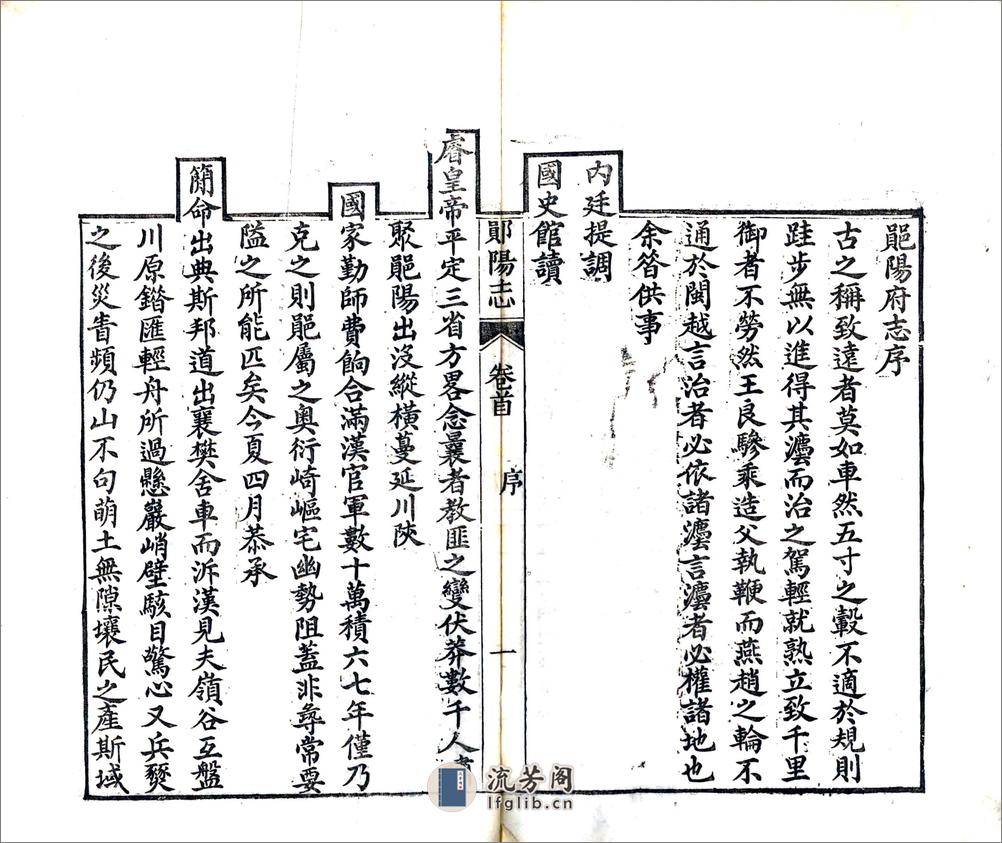 鄖陽府志序
古之稱致遠者莫如車然五寸之轂不適於規則
跬步無以進得其灋而治之駕輕就熟立致千里
御者不勞然王良驂乘造父執鞭而燕趙之輪不
通於閩越言治者必依諸灋言灋者必權諸地也
余曾供事
內廷提調
國史館讀
鄖陽志 卷首 序 一
睿皇帝平定三省方畧念曩者教匪之變伏莽數千人
聚鄖陽出沒縱橫蔓延川陝
國家勤師費餉合滿漢官軍數十萬積六七年僅乃
克之則鄖屬之奧衍崎嶇宅幽勢阻蓋非尋常要
隘之所能匹矣今夏四月恭承
簡命出典斯邦道出襄樊舍車而泝漢見夫嶺谷互盤
川原鍇匯輕舟所過懸巖峭壁駭目驚心又兵燹
之後災眚頻仍山不句萌土無隙壤民之產斯域
流芳阁
lfglib.cn